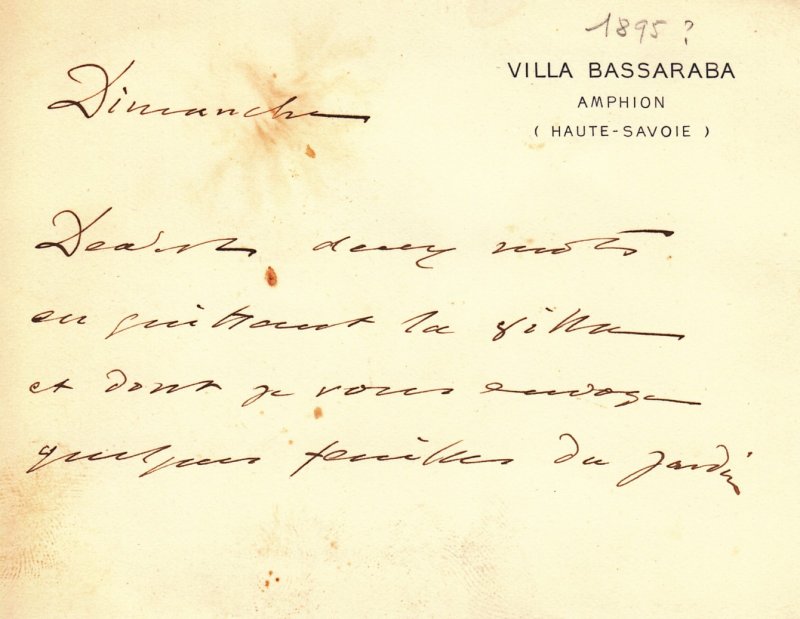 1895 ?
VILLA BASSARABA
AMPHION
( HAUTE-SAVOIE )
Dimanche
Dearest, deux mots
en quittant la villa
et dont je vous envoye
quelques feuilles du jardin